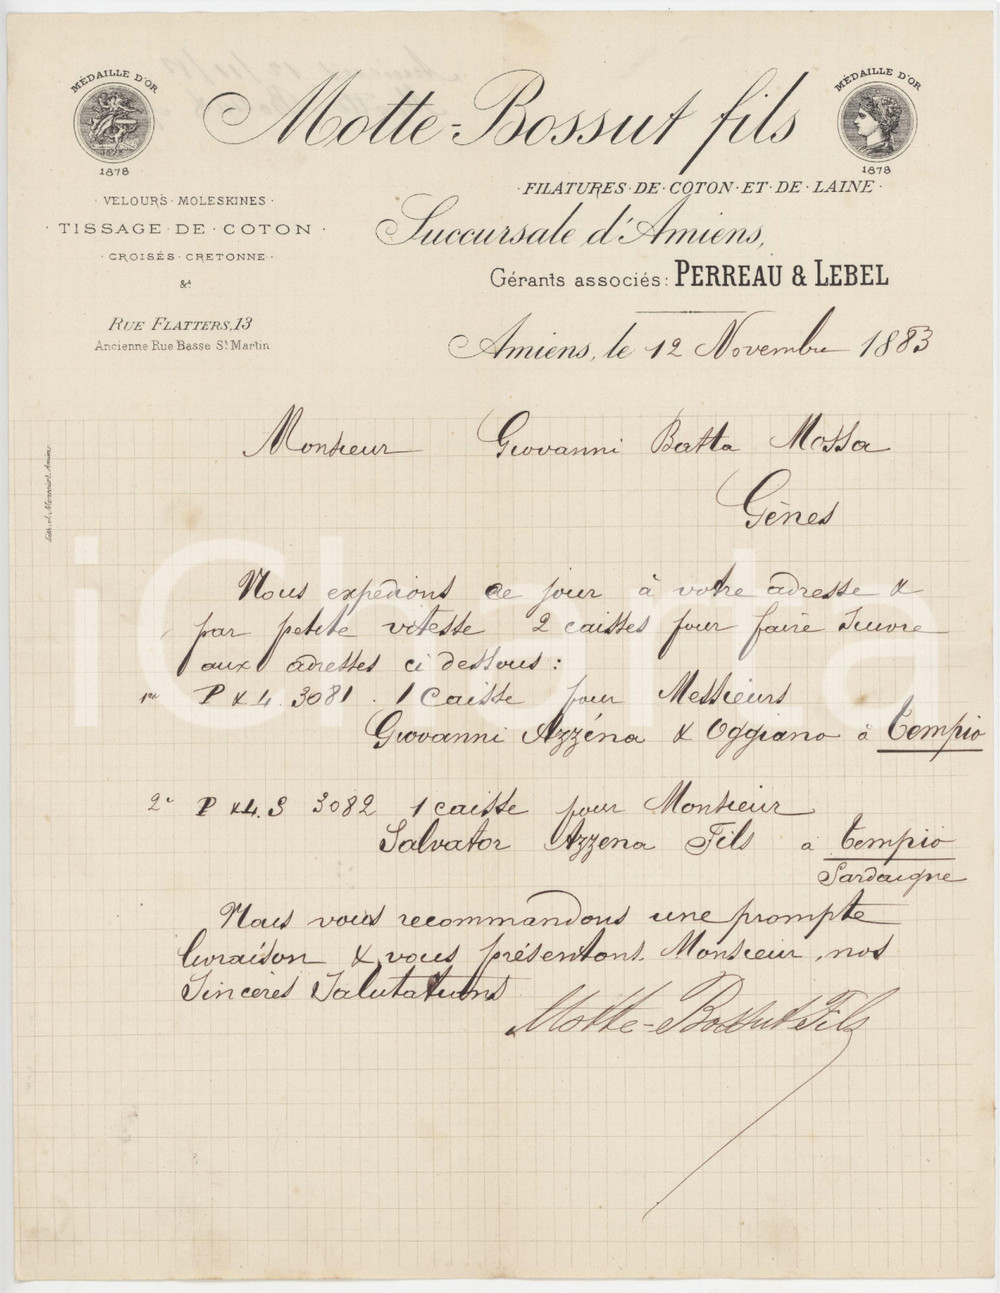 MÉDAILLE D'OR
1878
Motte-Bossut fils
MÉDAILLE D'OR
1878
· FILATURES · DE · COTON · ET · DE · LAINE ·
· VELOURS · MOLESKINES ·
· TISSAGE · DE · COTON ·
· CROISÉS · CRETONNE ·
&a
RUE FLATTERS, 13
Ancienne Rue Basse St Martin
Succursale d'Amiens,
Gérants associés: PERREAU & LEBEL
Amiens, le 12 Novembre 1883
Monsieur Giovanni Batta Mossa
Gênes
Nous expédions ce jour à votre adresse &
par petite vitesse 2 caisses pour faire suivre
aux adresses ci dessous :
1re P & L. 3081 . 1 Caisse pour Messieurs
Giovanni Azzéna & Oggiano à Tempio
2e P & L. S 3082 1 caisse pour Monsieur
Salvator Azzena Fils à Tempio
Sardaigne
Nous vous recommandons une prompte
livraison & vous présentons, Monsieur, nos
Sincères Salutations
Motte-Bossut Fils
iCharta